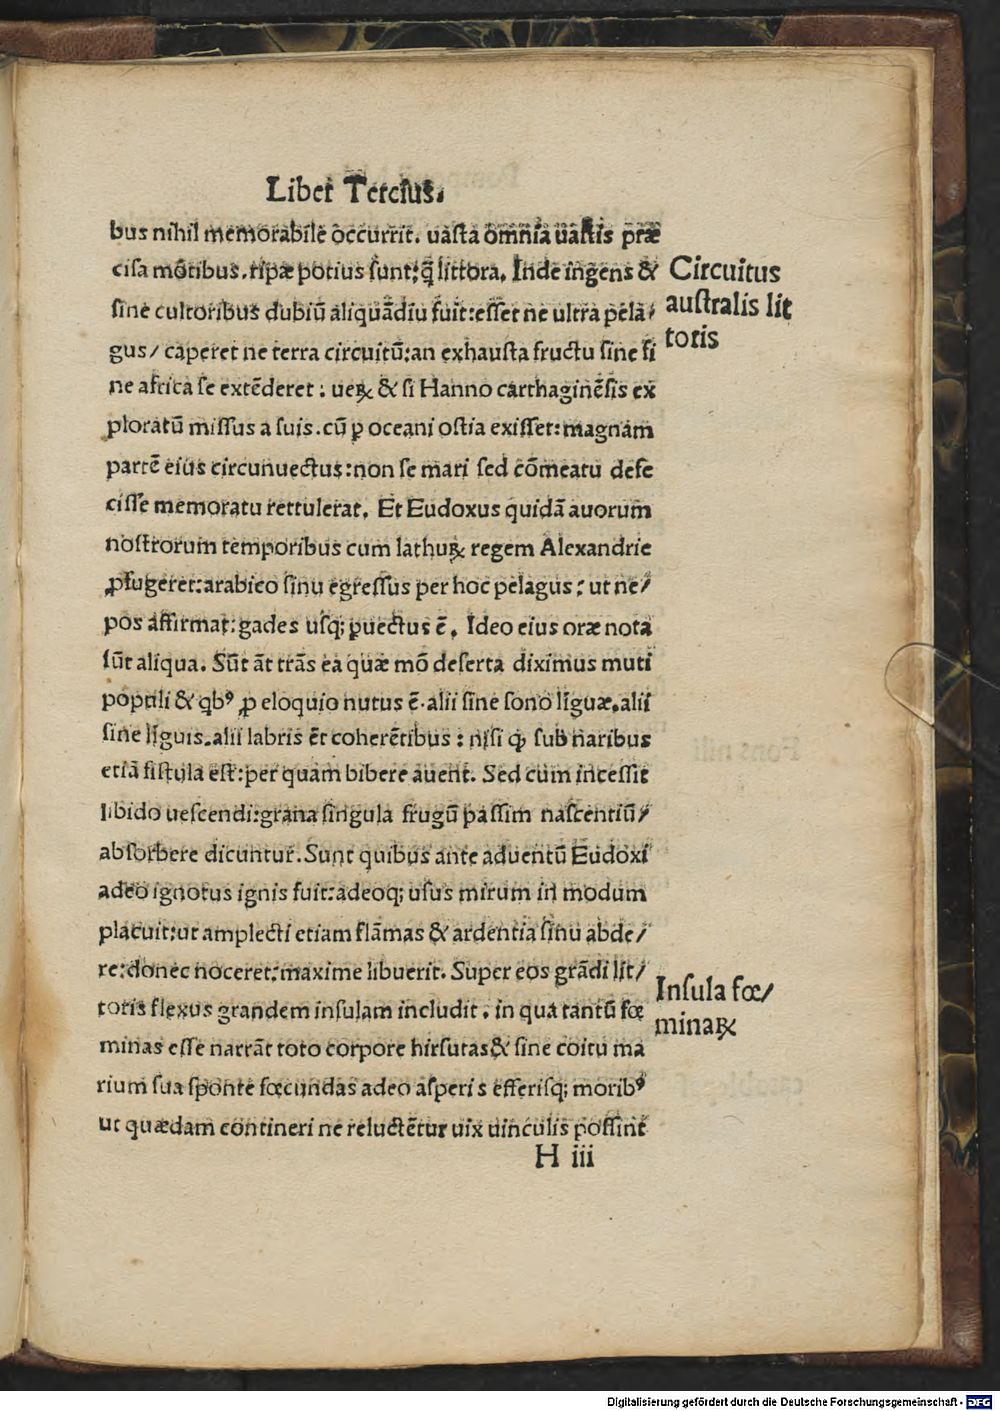 Liber Tercius.
bus nihil memorabile occurrit. uasta omnia uastis præ
cisa mōtibus. ripæ potius sunt: q̄ littora. Inde ingens &
sine cultoribus dubiū aliquādiu fuit: esset ne ultra pela/
gus/ caperet ne terra circuitū: an exhausta fructu sine fi
ne africa se extēderet : ueꝝ & si Hanno carthaginēsis ex
ploratū missus a suis. cū ꝑ oceani ostia exisset: magnam
partē eius circunuectus: non se mari sed cōmeatu defe
cisse memoratu rettulerat. Et Eudoxus quidā auorum
nostrorum temporibus cum lathuꝝ regem Alexandrie
ꝓfugeret: arabico sinu egressus per hoc pelagus : ut ne/
pos affirmat: gades usq; ꝑuectus ē. Ideo eius oræ nota
sūt aliqua. Sūt āt trās ea quæ mō deserta diximus muti
populi & qbꝰ ꝓ eloquio nutus ē. alii sine sono līguæ. alii
sine līguis. alii labris ēt coherētibus : nisi ꝙ sub naribus
etiā fistula est: per quam bibere auent. Sed cum incessit
libido uescendi: grana singula frugū passim nascentiū/
absorbere dicuntur. Sunt quibus ante aduentū Eudoxi
adeo ignotus ignis fuit: adeoq; usus mirum in modum
placuit: ut amplecti etiam flāmas & ardentia sinu abde/
re: donec noceret: maxime libuerit. Super eos grādi lit/
toris flexus grandem insulam includit . in qua tantū fœ
minas esse narrāt toto corpore hirsutas & sine coitu ma
rium sua sponte fœcundas adeo asperis efferisq; moribꝰ
ut quædam contineri ne reluctētur uix uinculis possint
H iii
Circuitus
australis lit
toris
Insula fœ/
minaꝝ
Digitalisierung gefördert durch die Deutsche Forschungsgemeinschaft - DFG